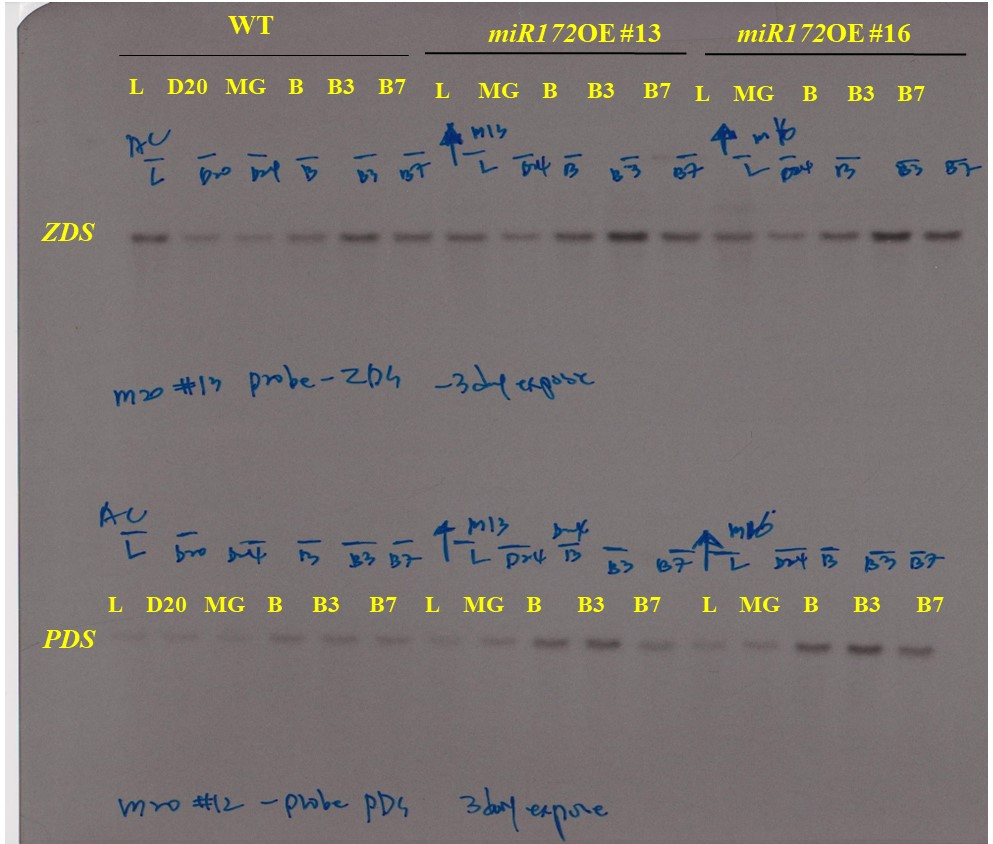 WT miR172OE #13 miR172OE #16
L D20 MG B B3 B7 L MG B B3 B7 L MG B B3 B7
AC M13 m16
L D20 D24 B B3 B7 L D24 B B3 B7 L D24 B B3 B7
ZDS
m20 #13 probe - ZDS - 3 day expose
AC M13 D24 m16
L D20 D24 B B3 B7 L D24 B B3 B7 L D24 B B3 B7
L D20 MG B B3 B7 L MG B B3 B7 L MG B B3 B7
PDS
m20 #12 - probe PDS 3 day expose